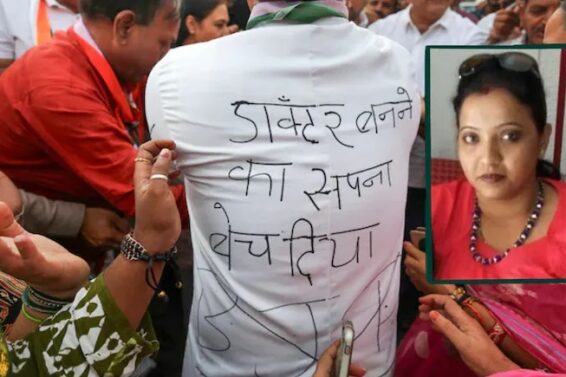 डाक्टर बनने
का सपना
बेच दिया